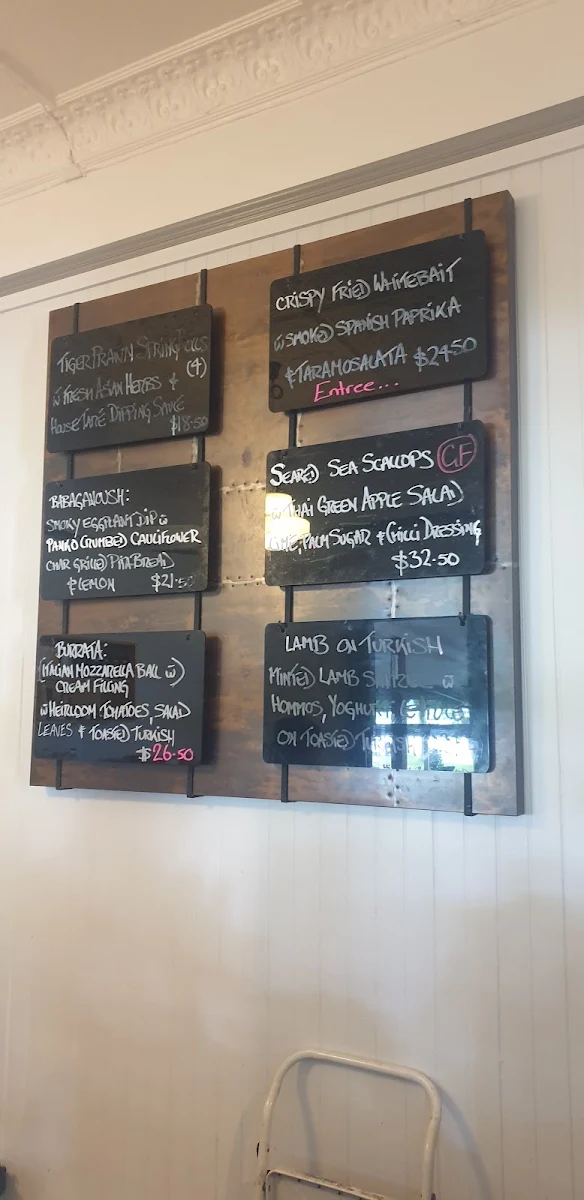 Tiger Prawn Spring Rolls
(4)
w̄ Fresh Asian Herbs &
House Tare Dipping Sauce
$18.50
Babaganoush:
Smoky Eggplant Dip w̄
Panko Crumbed Cauliflower
Char Grilled Pita Bread
& Lemon $21.50
Burrata:
(Italian Mozzarella Ball w̄)
Cream Filling
w̄ Heirloom Tomatoes, Salad
Leaves & Toasted Turkish
$26.50
Crispy Fried Whitebait
w̄ Smoked Spanish Paprika
& Taramosalata $24.50
Entree...
Seared Sea Scallops GF
w̄ Thai Green Apple Salad
Lime, Palm Sugar & Chilli Dressing
$32.50
Lamb on Turkish
Minted Lamb w̄
Hommos, Yoghurt
on Toasted Turkish